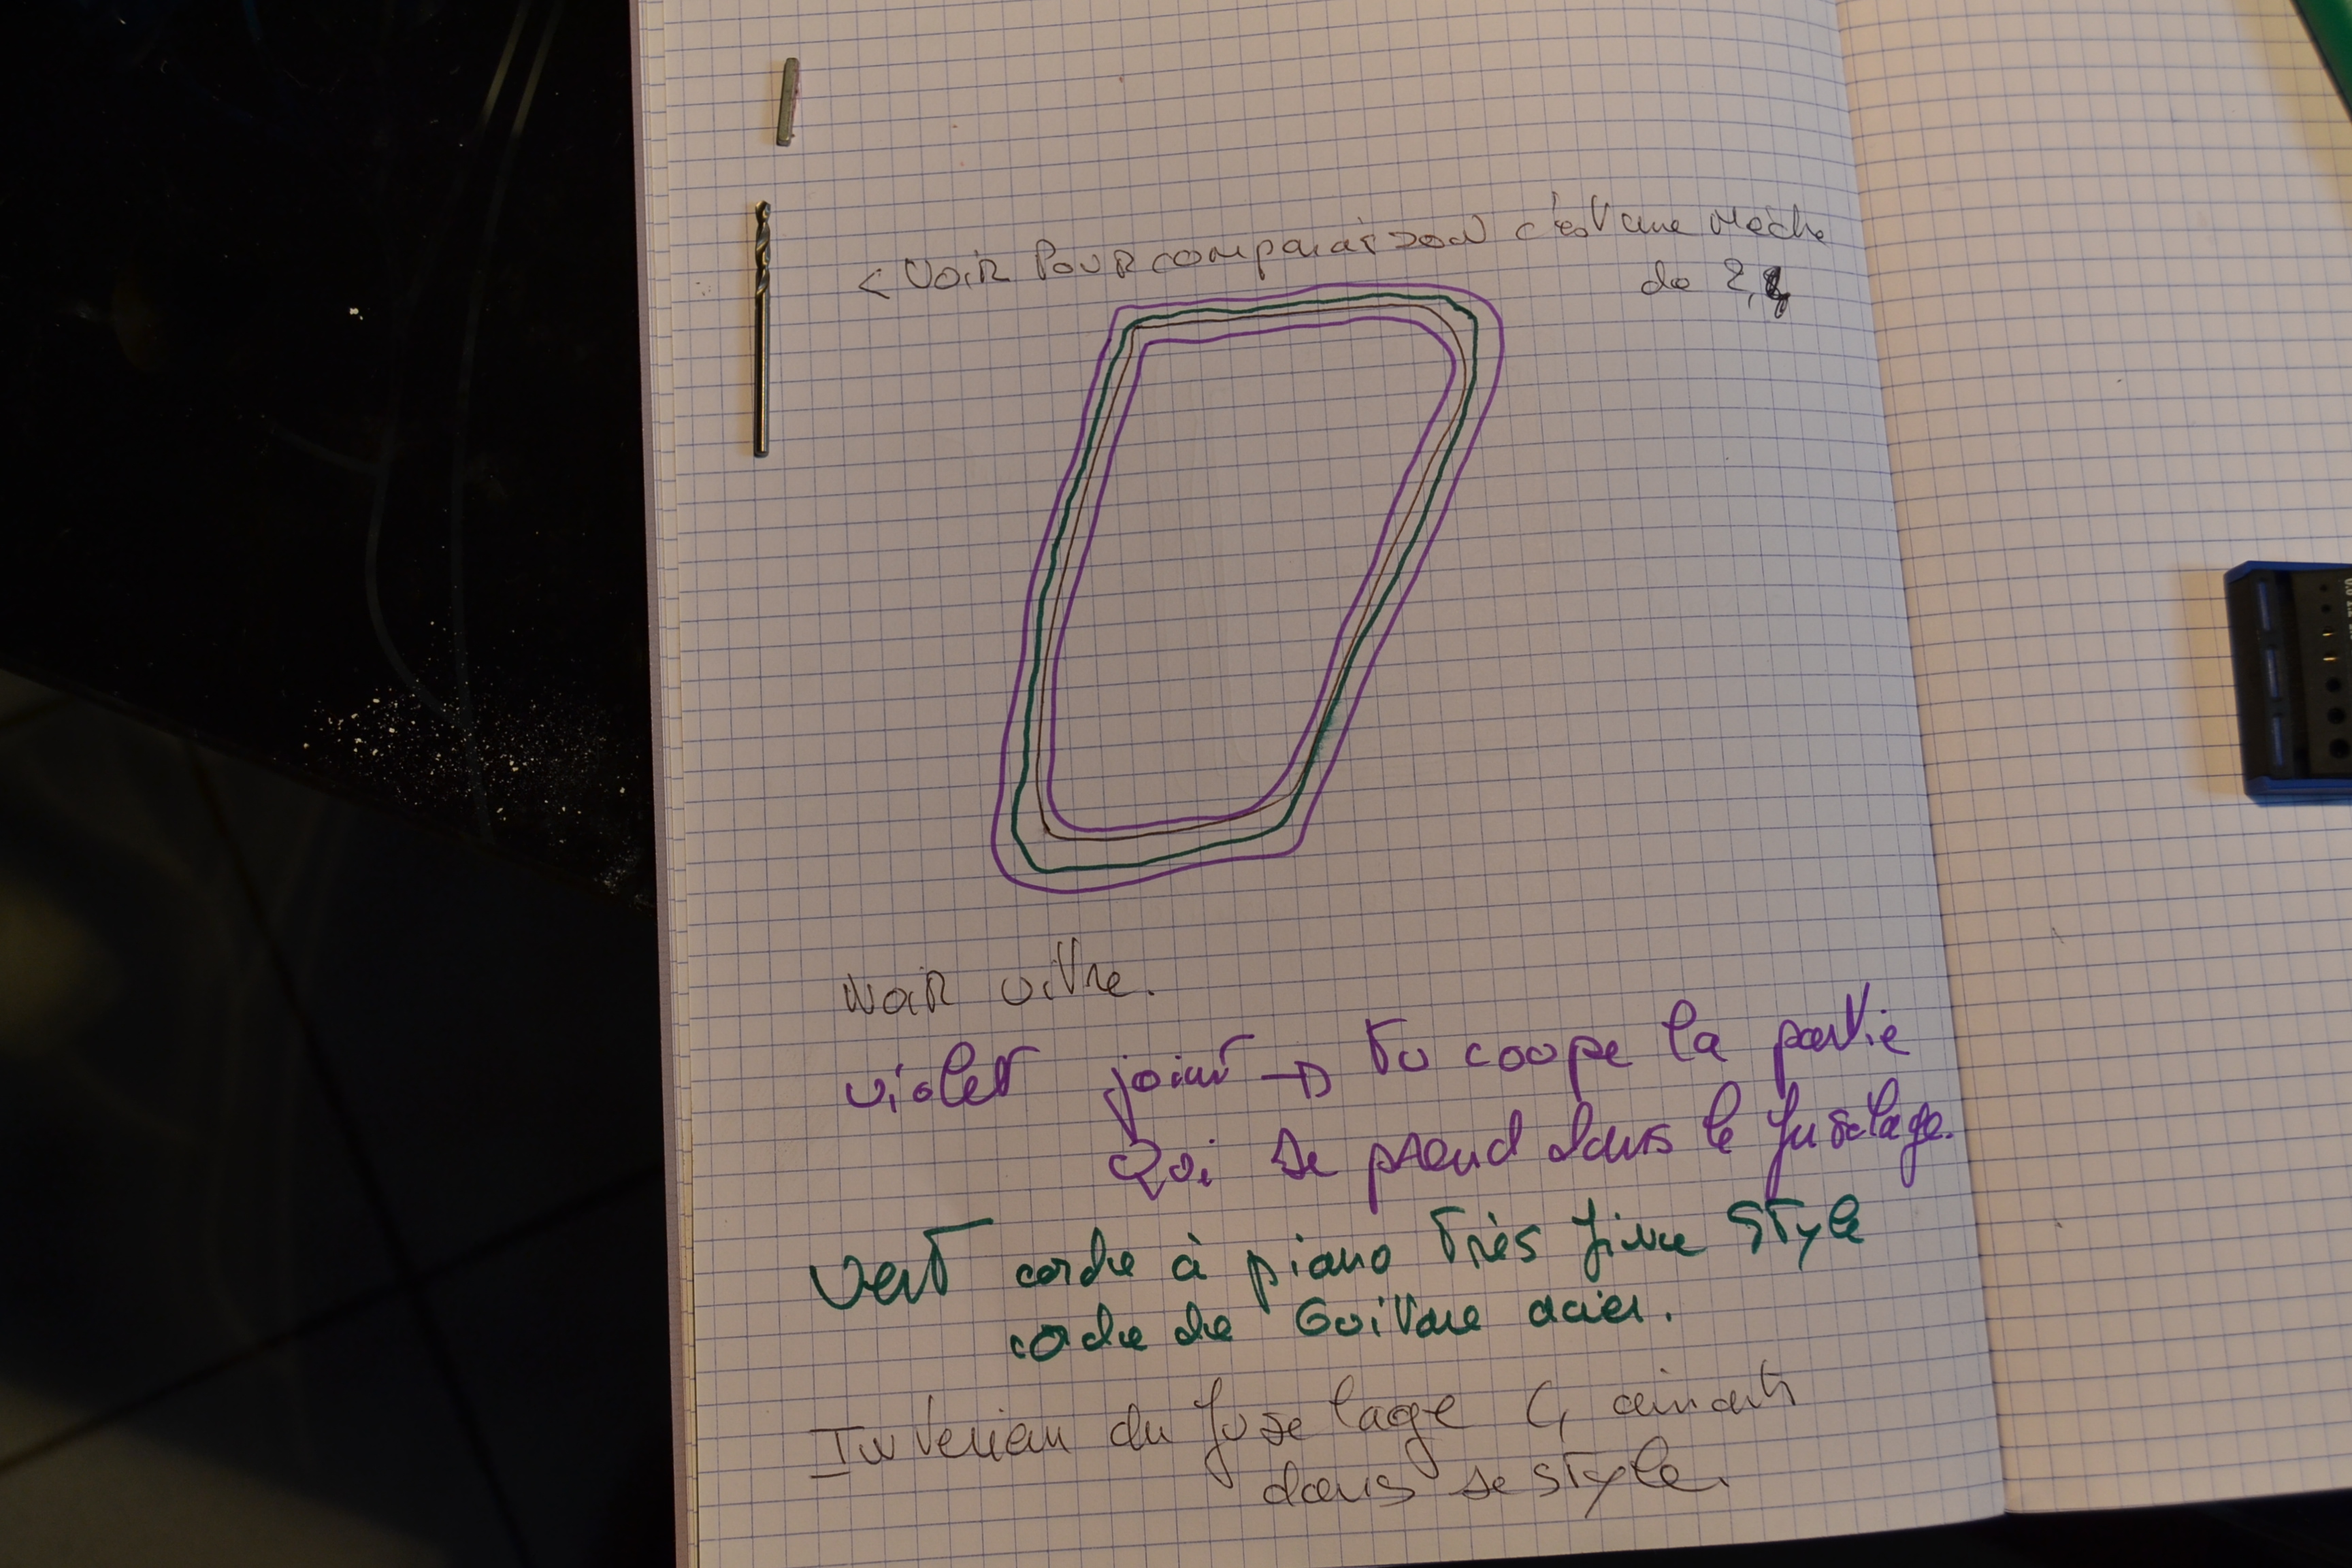 < Voir Pour comparaison c'est une mèche
de 2,
Noir vitre.
violet joint → tu coupe la partie
Qui se prend dans le fuselage.
Vert corde à piano très fine style
corde de Guitare acier.
Interieur du fuselage
dans se style.